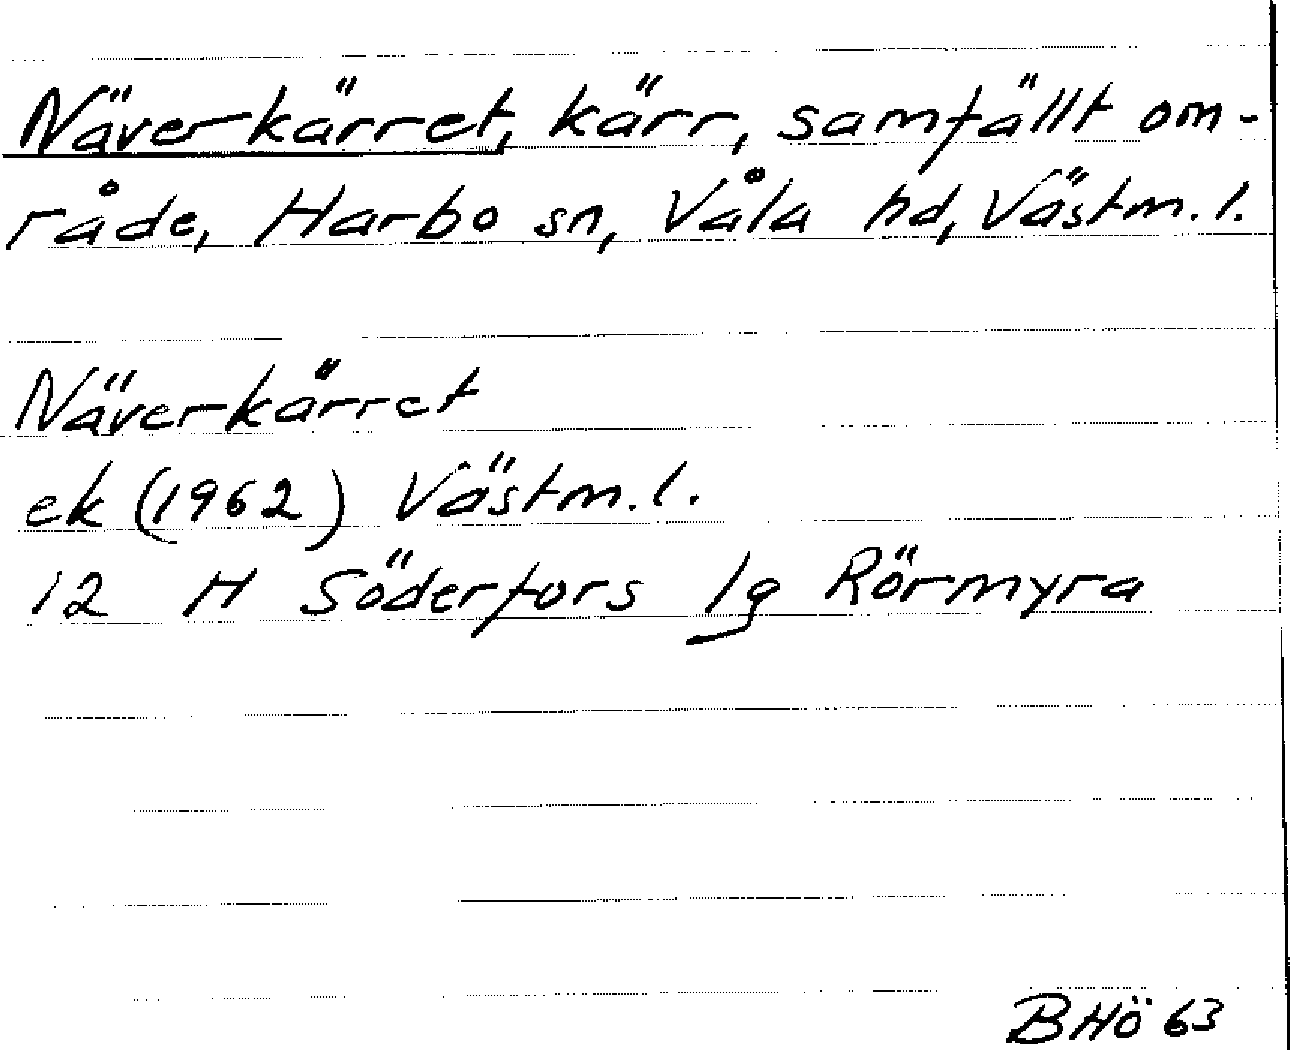 Näverkärret, kärr, samfällt om-
råde, Harbo sn, Våla hd, Västm. l.
Näverkärret
ek (1962) Västm. l.
12 H Söderfors 1g Rörmyra
BHö 63